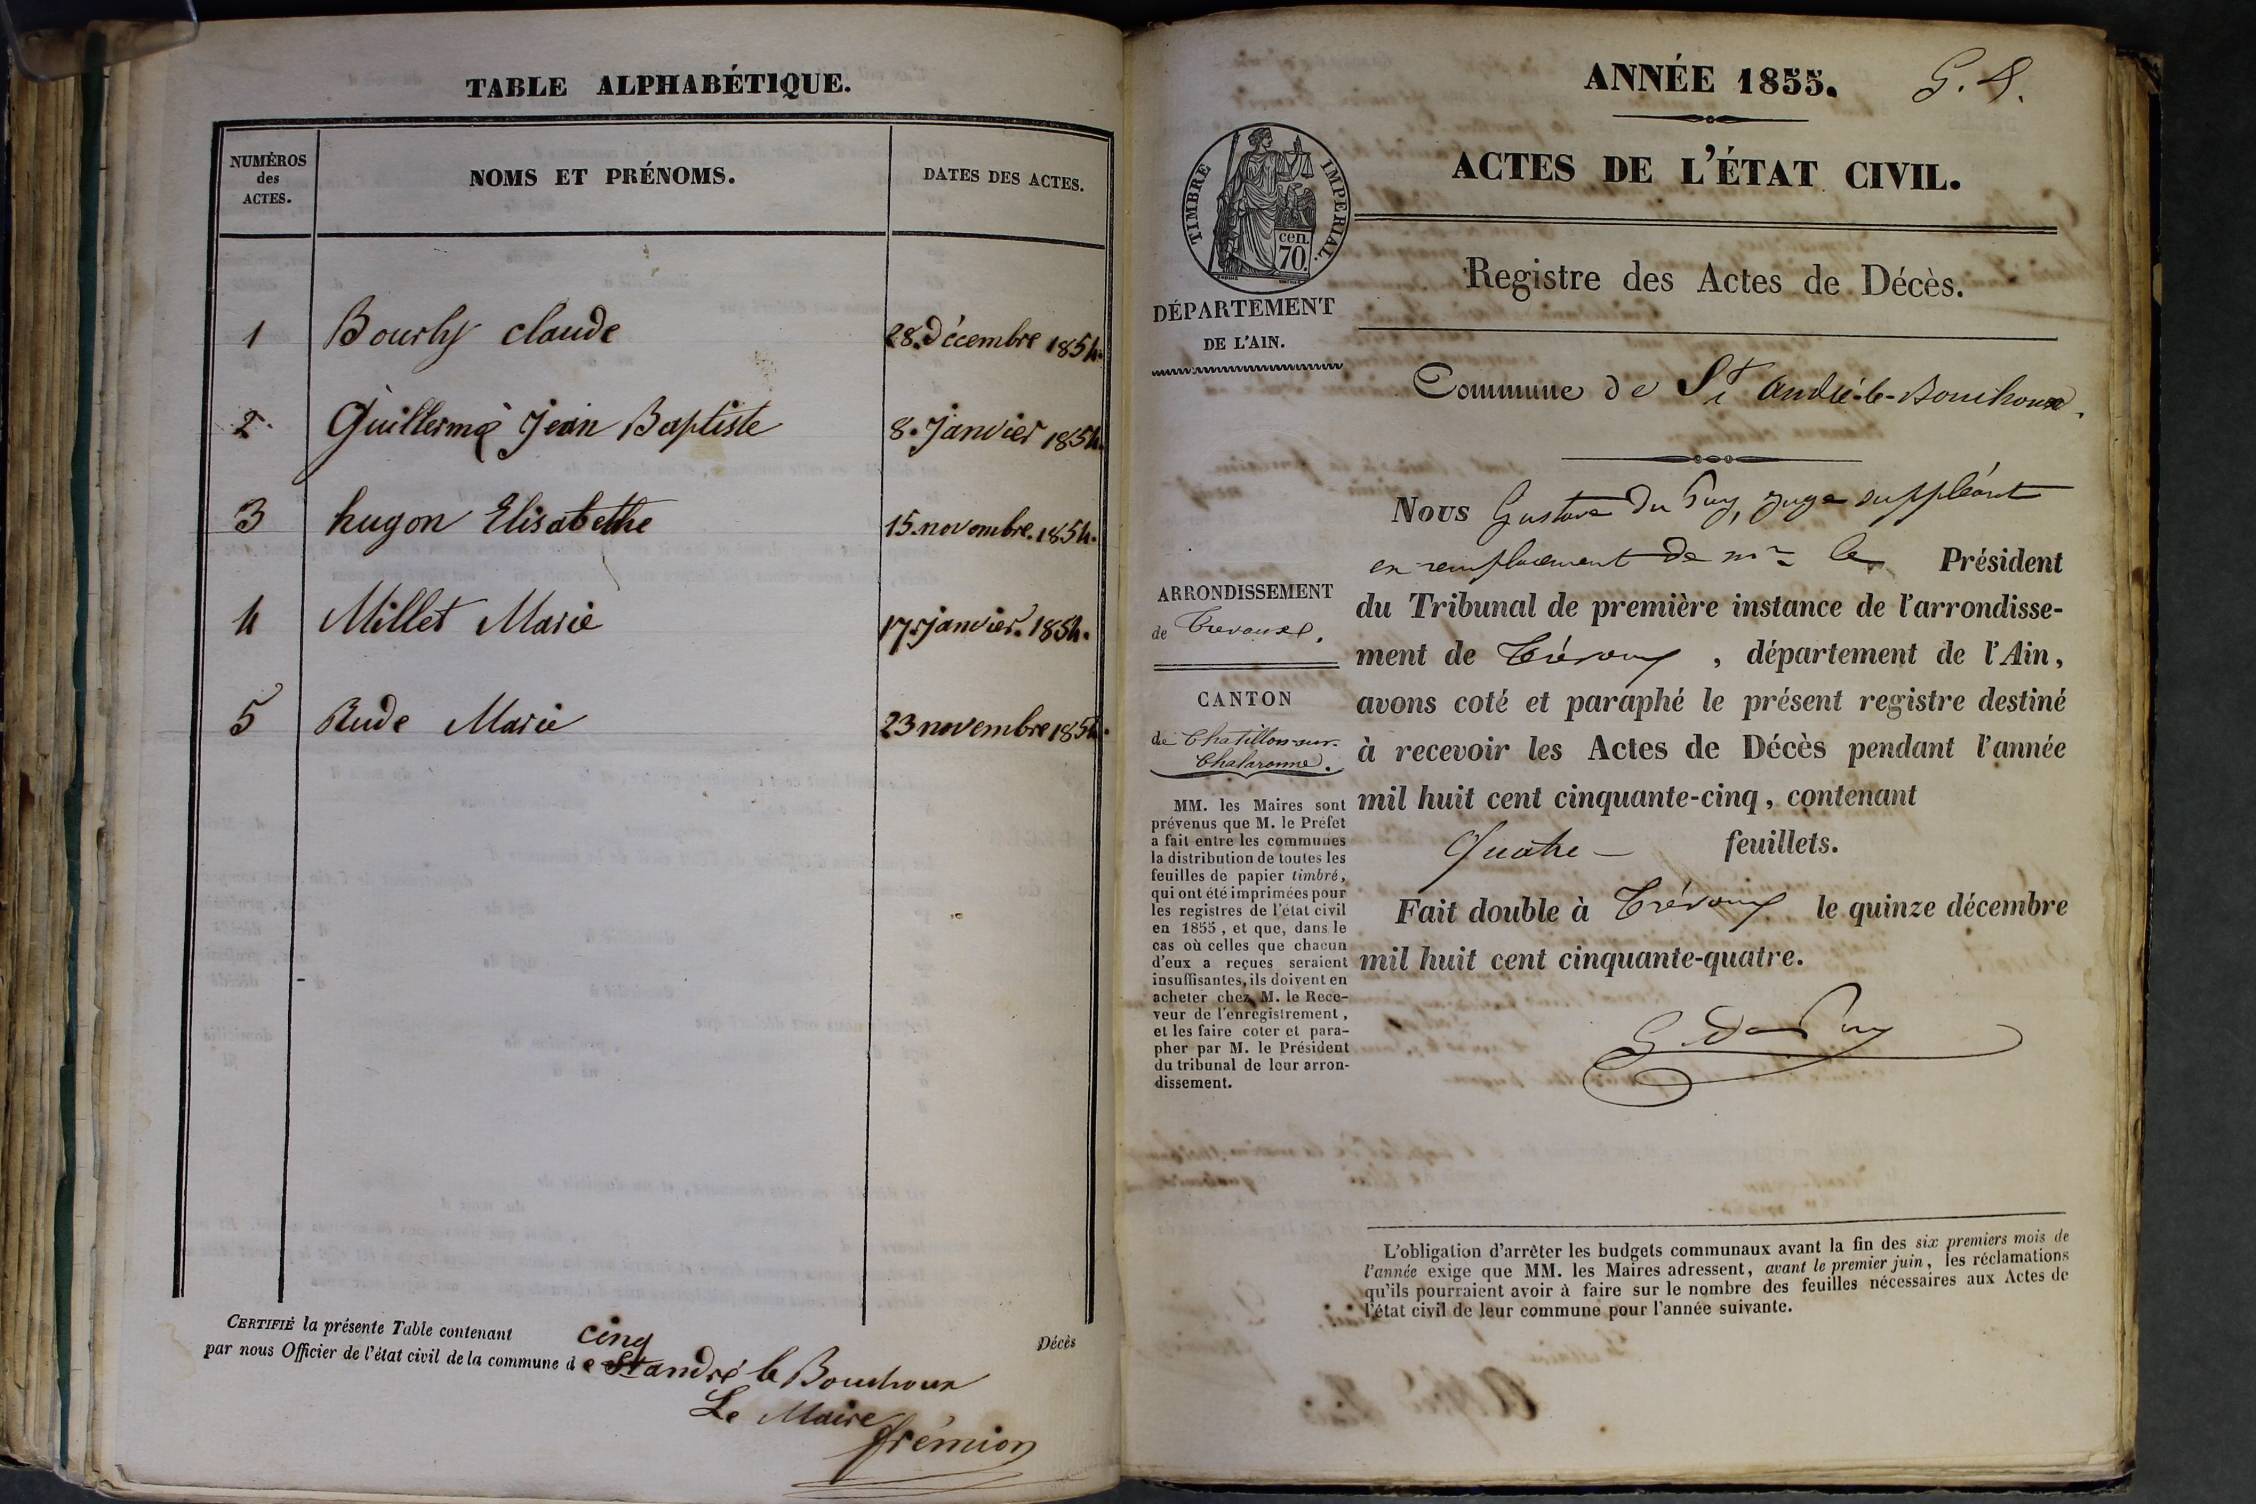 TABLE ALPHABÉTIQUE.
NUMÉROS des ACTES.
NOMS ET PRÉNOMS.
DATES DES ACTES.
1 Bourly claude 28. Décembre 1854.
2. Guillermé Jean Baptiste 8. Janvier 1854.
3 hugon Elisabethe 15. novembre. 1854.
4 Millet Marie 17. janvier. 1854.
5 Rude Marie 23 novembre 1854.
CERTIFIÉ la présente Table contenant cinq Décès
par nous Officier de l'état civil de la commune de St andré le Bouchoux
Le Maire
frémion
ANNÉE 1855.
G. D.
ACTES DE L'ÉTAT CIVIL.
TIMBRE IMPERIAL.
cen. 70.
DÉPARTEMENT
DE L'AIN.
Registre des Actes de Décès.
Commune de St André-le-Bouchoux.
ARRONDISSEMENT
de Trevoux.
CANTON
de Chatillon-sur-
Chalaronne.
MM. les Maires sont
prévenus que M. le Préfet
a fait entre les communes
la distribution de toutes les
feuilles de papier timbré,
qui ont été imprimées pour
les registres de l'état civil
en 1855, et que, dans le
cas où celles que chacun
d'eux a reçues seraient
insuffisantes, ils doivent en
acheter chez M. le Rece-
veur de l'enregistrement,
et les faire coter et para-
pher par M. le Président
du tribunal de leur arron-
dissement.
Nous Gustave Du Puy, juge suppléant
en remplacement de mr le Président
du Tribunal de première instance de l'arrondisse-
ment de Trévoux, département de l'Ain,
avons coté et paraphé le présent registre destiné
à recevoir les Actes de Décès pendant l'année
mil huit cent cinquante-cinq, contenant
Quatre — feuillets.
Fait double à Trévoux le quinze décembre
mil huit cent cinquante-quatre.
G. Du Puy
L'obligation d'arrêter les budgets communaux avant la fin des six premiers mois de
l'année exige que MM. les Maires adressent, avant le premier juin, les réclamations
qu'ils pourraient avoir à faire sur le nombre des feuilles nécessaires aux Actes de
l'état civil de leur commune pour l'année suivante.